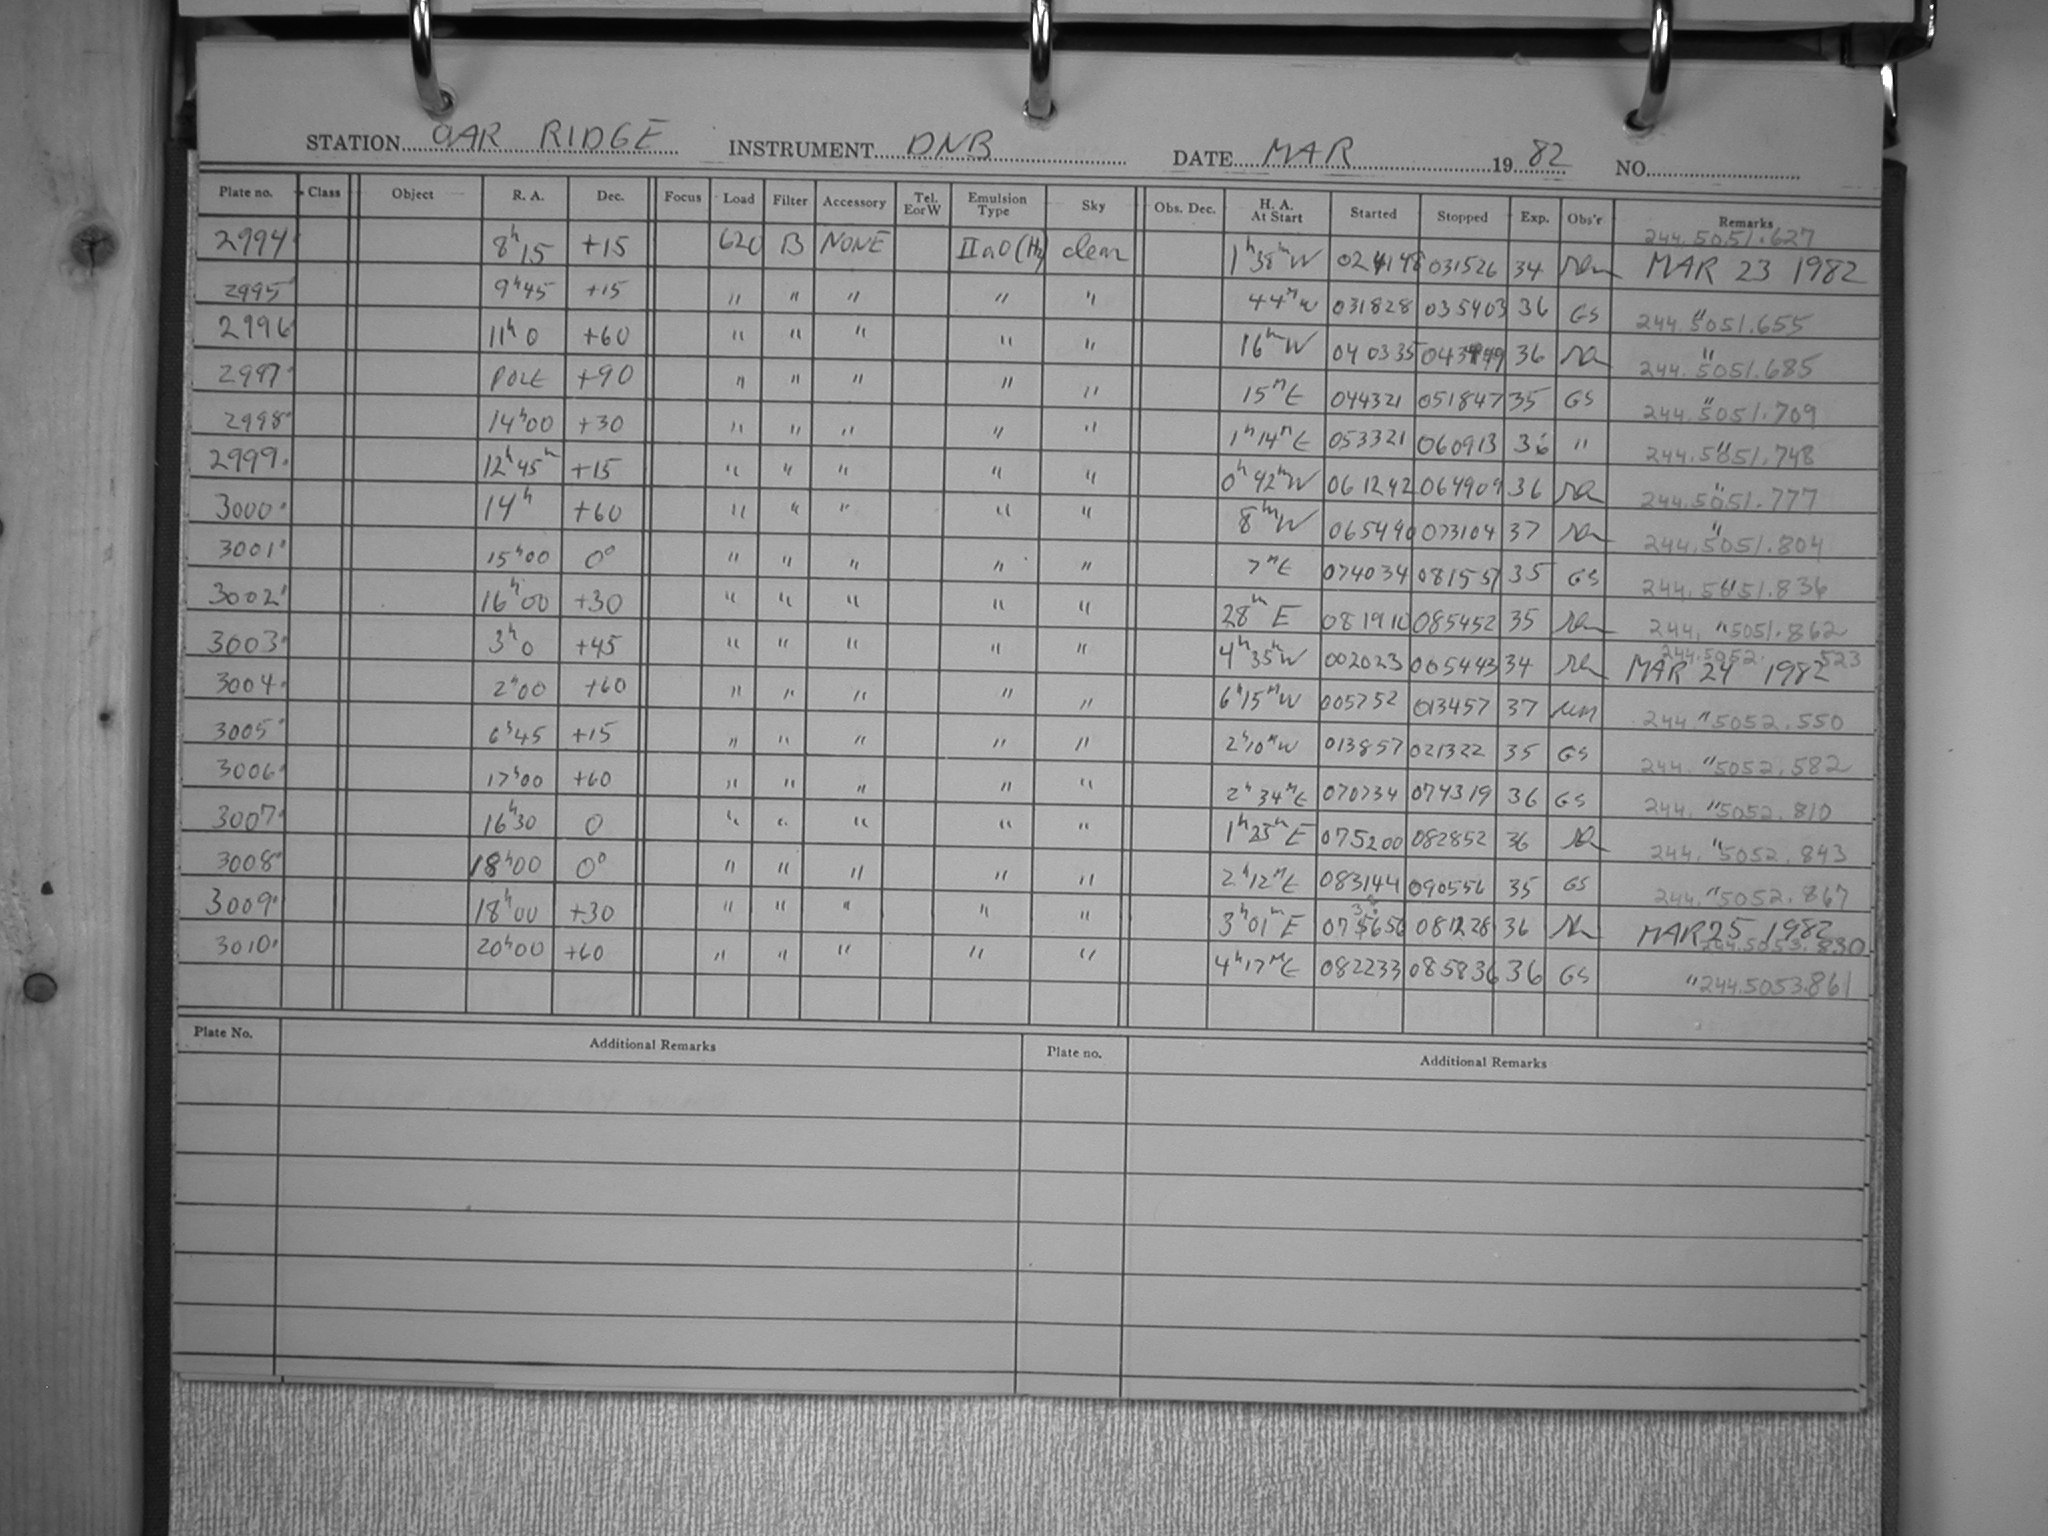 STATION OAR RIDGE INSTRUMENT DNB DATE MAR 19 82 NO.
Plate no. Class Object R. A. Dec. Focus Load Filter Accessory Tel. E or W Emulsion Type Sky Obs. Dec. H. A. At Start Started Stopped Exp. Obs'r Remarks
2994 8h15 +15 620 B NONE IIaO(H2) clear 1h38mW 024148 031526 34 244.5051.627 MAR 23 1982
2995 9h45 +15 " " " " " 44mW 031828 035403 36 GS " 244.5051.655
2996 11h0 +60 " " " " " 16mW 040335 36 " 244.5051.685
2997 POLE +90 " " " " " 15mE 044321 051847 35 GS " 244.5051.709
2998 14h00 +30 " " " " " 1h14mE 053321 060913 36 " " 244.5051.748
2999 12h45m +15 " " " " " 0h42mW 061242 064909 36 " 244.5051.777
3000 14h +60 " " " " " 8mW 065440 073104 37 " 244.5051.804
3001 15h00 0° " " " " " 7mE 074034 081557 35 GS " 244.5051.836
3002 16h00 +30 " " " " " 28m E 081910 085452 35 " 244.5051.862
3003 3h0 +45 " " " " " 4h35mW 002023 005443 34 244.5052.523 MAR 24 1982
3004 2h00 +60 " " " " " 6h15mW 005752 013457 37 " 244.5052.550
3005 6h45 +15 " " " " " 2h10mW 013857 021322 35 GS " 244.5052.582
3006 17h00 +60 " " " " " 2h34mE 070734 074319 36 GS " 244.5052.810
3007 16h30 0 " " " " " 1h25mE 075200 082852 36 " 244.5052.843
3008 18h00 0° " " " " " 2h12mE 083144 090556 35 GS " 244.5052.867
3009 18h00 +30 " " " " " 3h01mE 081228 36 MAR 25 1982 244.5053.830
3010 20h00 +60 " " " " " 4h17mE 082233 085836 36 GS " 244.5053.861
Plate No. Additional Remarks Plate no. Additional Remarks